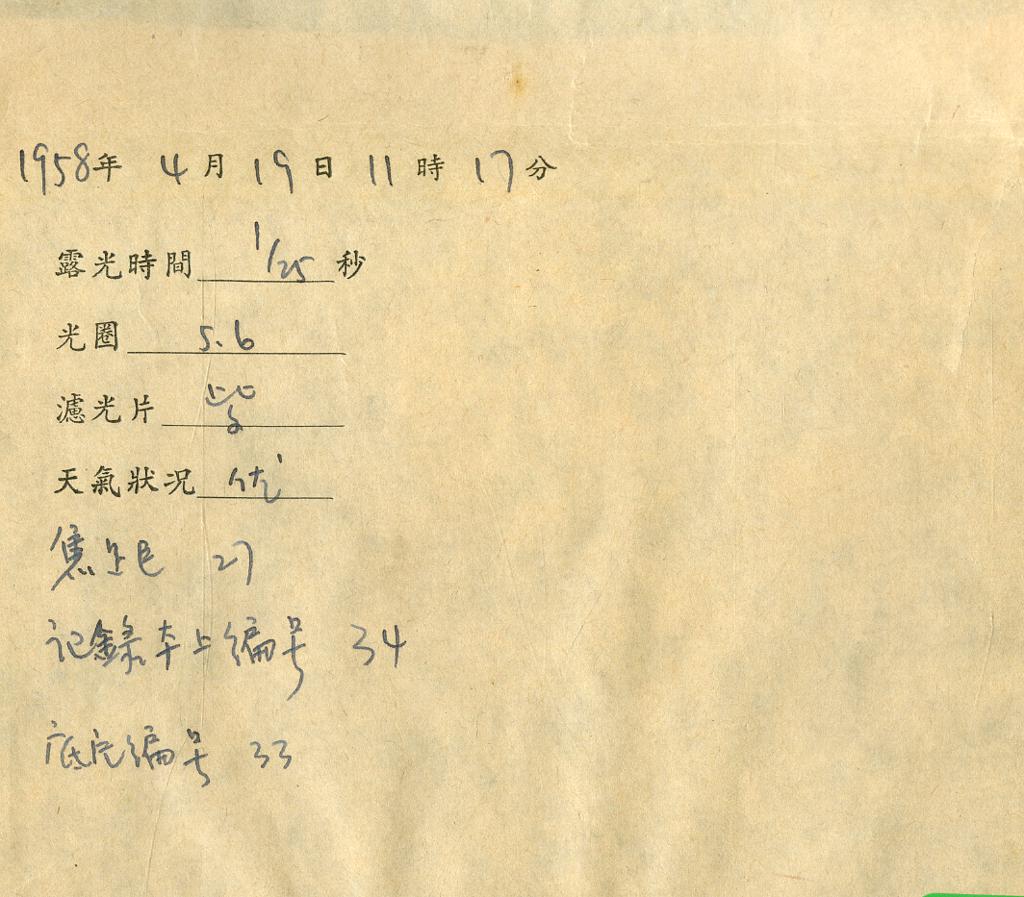 1958年 4月 19日 11時 17分
露光時間 1/25 秒
光圈 5.6
濾光片 紫
天氣狀况 优
焦距 27
记錄本上编号 34
底片编号 33